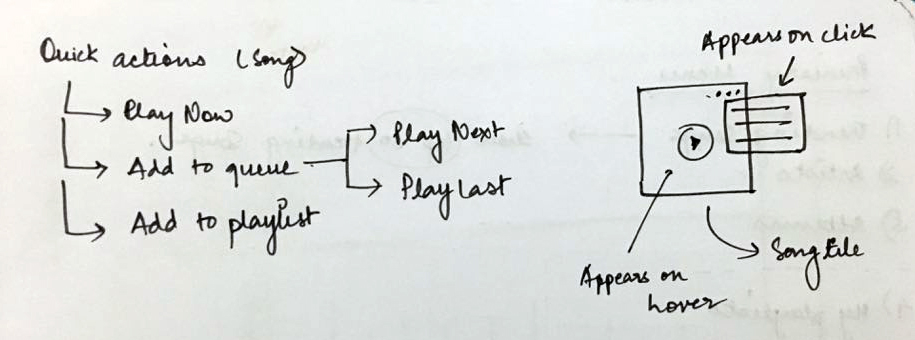 Quick actions (Song)
Play Now
Add to queue
Play Next
Play Last
Add to playlist
Appears on click
Appears on
hover
Song tile